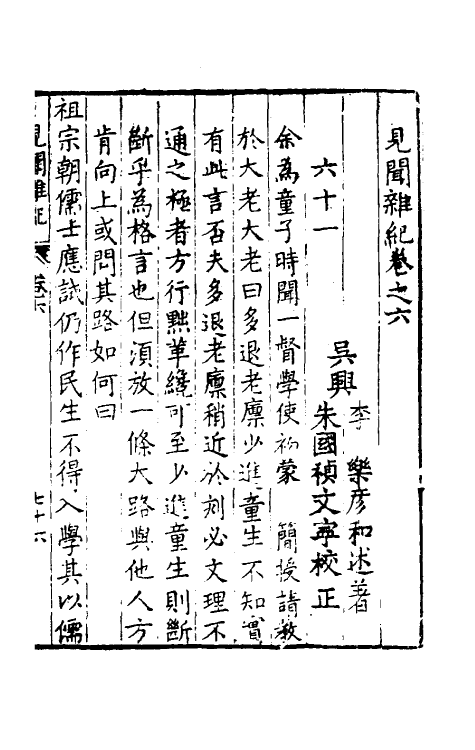 見聞雜紀卷之六
吳興
李樂彥和述著
朱國禎文寧校正
六十一
余為童子時聞一督學使初蒙　簡授請教
於大老大老曰多退老廪少進童生不知實
有此言否夫多退老廪稍近於刻必文理不
通之極者方行黜革纔可至少進童生則斷
斷乎為格言也但須放一條大路與他人方
肯向上或問其路如何曰
祖宗朝儒士應試仍作民生不得入學其以儒
見聞雜紀　卷六　七十六